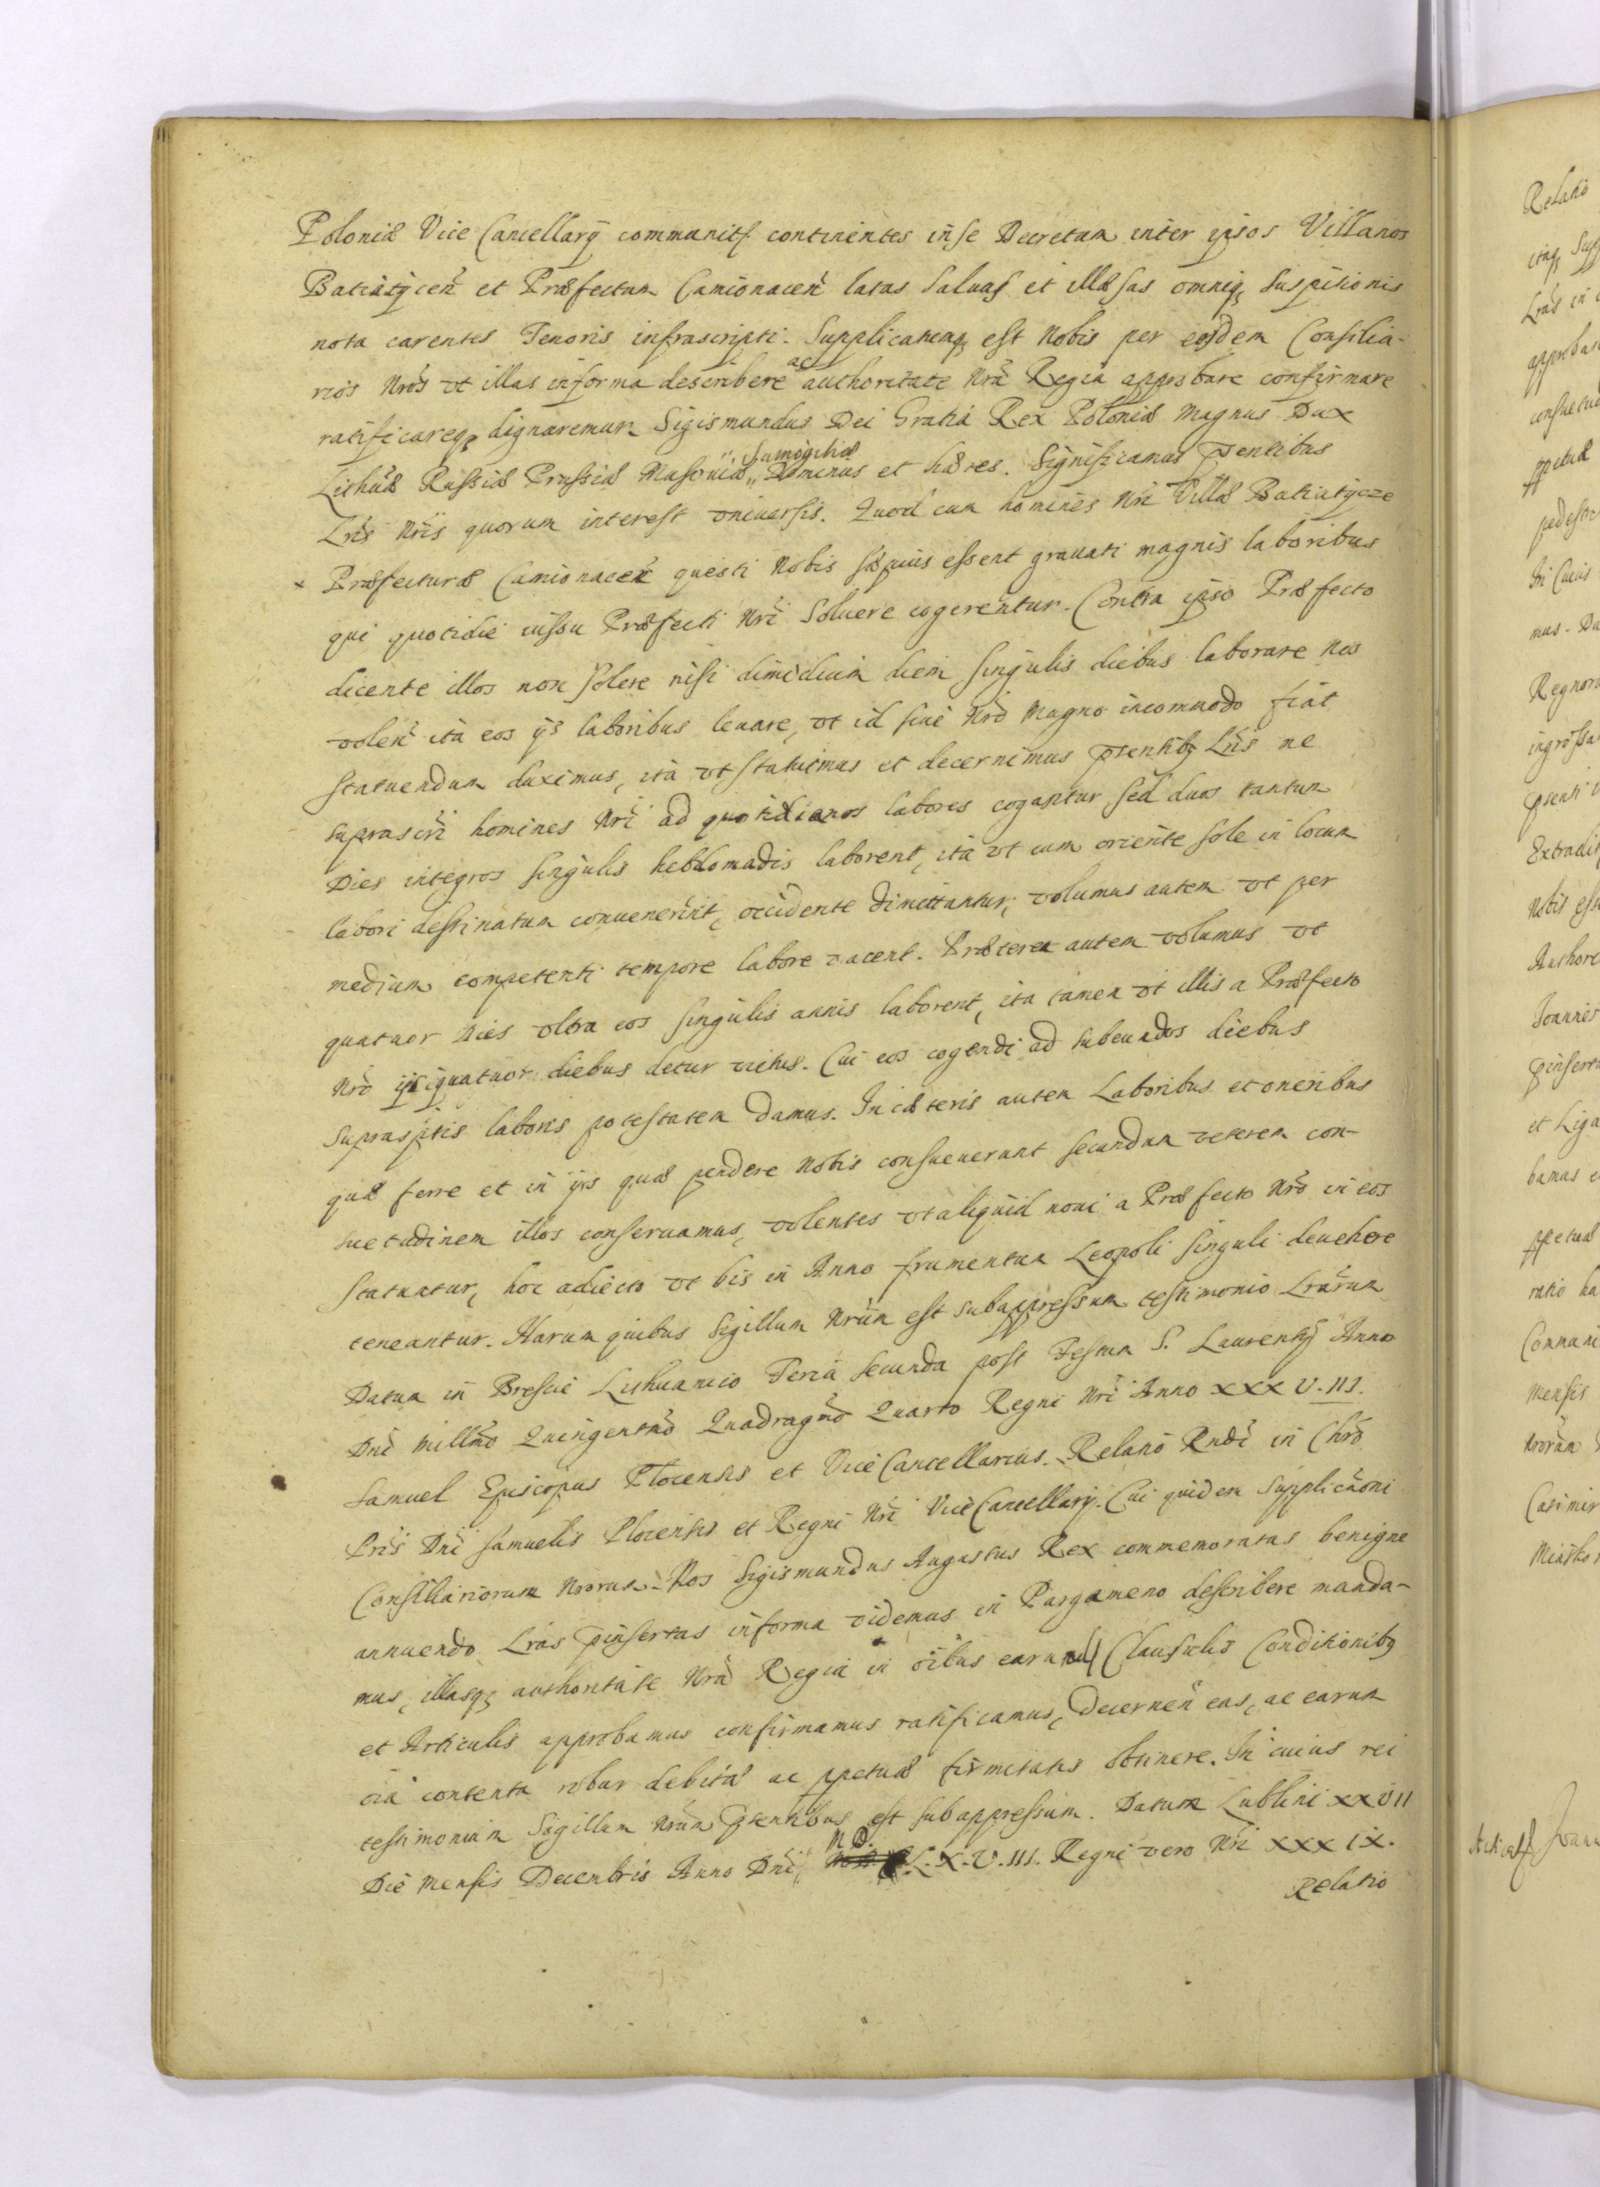 Poloniæ Vice Cancellarÿ communitas continentes in se Decretum inter ipsos Villanos
Batiatÿcen̄ et Præfectum Camionacen̄ latas Saluas et illæsas omniq; suspitionis
nota carentes Tenoris infrascripti. Supplicatumq; est Nobis per eosdem Consilia-
rios Nrōs vt illas in forma describere ac authoritate Nrā Regia approbare confirmare
ratificareq; dignaremur. Sigismundus Dei Gratia Rex Poloniæ Magnus Dux
Lithūæ Russiæ Prussiæ Masouiæ „ Samogitiæ „ Dominus et hæres. Significamus p̄ntibus
Lrīs Nrīs quorum interest vniuersis. Quod cum homines Nrī Villæ Batiatÿcze
× Præfecturæ Camionacen̄ questi Nobis sæpius essent grauati magnis laboribus
qui quotidie iussu Præfecti Nrī Soluere cogerentur. Contra ipso Præfecto
dicente illos non solere nisi dimidium diem singulis diebus laborare Nos
volen̄ ita eos ÿs laboribus leuare, vt id sine Nrō Magno incommodo fiat
statuendum duximus, ita vt statuimus et decernimus p̄sentib; Lrīs ne
suprascrī homines Nrī ad quotidianos labores cogantur sed duos tantum
Dies integros singulis hebdomadis laborent, ita vt cum oriente sole in locum
labori destinatum conuenerint, occidente dimittantur, volumus autem vt per
medium competenti tempore labore vacent. Præterea autem volumus vt
quatuor dies vltra eos singulis annis laborent, ita tamen vt illis a Præfecto
Nrō ÿs quatuor diebus detur victus. Cui eos cogendi ad subeundos diebus
suprasptis laboris potestatem damus. In cæteris autem Laboribus et oneribus
quæ ferre et in ÿs quæ pendere Nobis consueuerunt secundum veterem con-
suetudinem illos conseruamus, volentes vt aliquid noui a Præfecto Nrō in eos
statuatur, hoc adiecto vt bis in Anno frumentum Leopoli singuli deuehere
teneantur. Harum quibus Sigillum Nrūm est subappressum testimonio Lrārum
Datum in Brescie Lithuanico Feria secunda post Festum S. Laurentÿ Anno
Dnī Millmō Quingentmō Quadragmō Quarto Regni Nrī Anno XXXV.III.
Samuel Episcopus Plocensis et Vice Cancellarius. Relatio Rndī in Chrō
Prīs Dnī Samuelis Plocensis et Regni Nrī Vice Cancellarÿ. Cui quidem Supplicāoni
Consiliariorum Nrorum Nos Sigismundus Augustus Rex commemoratas benigne
annuendo Lrās p̄insertas in forma videmus in Pargameno describere manda-
mus, illasq; authoritate Nrā Regia in oībus earum Clausulis Conditionib;
et Articulis approbamus confirmamus ratificamus, decernen̄ eas, ac earum
oīa contenta robur debitæ ac ppetuæ firmitatis obtinere. In cuius rei
testimonium Sigillum Nrūm p̄sentibus est subappressum. Datum Lublini XXVII
Die Mensis Decembris Anno Dnī M.D.L.X.V.III. Regni vero Nrī XXXIX.
Relatio